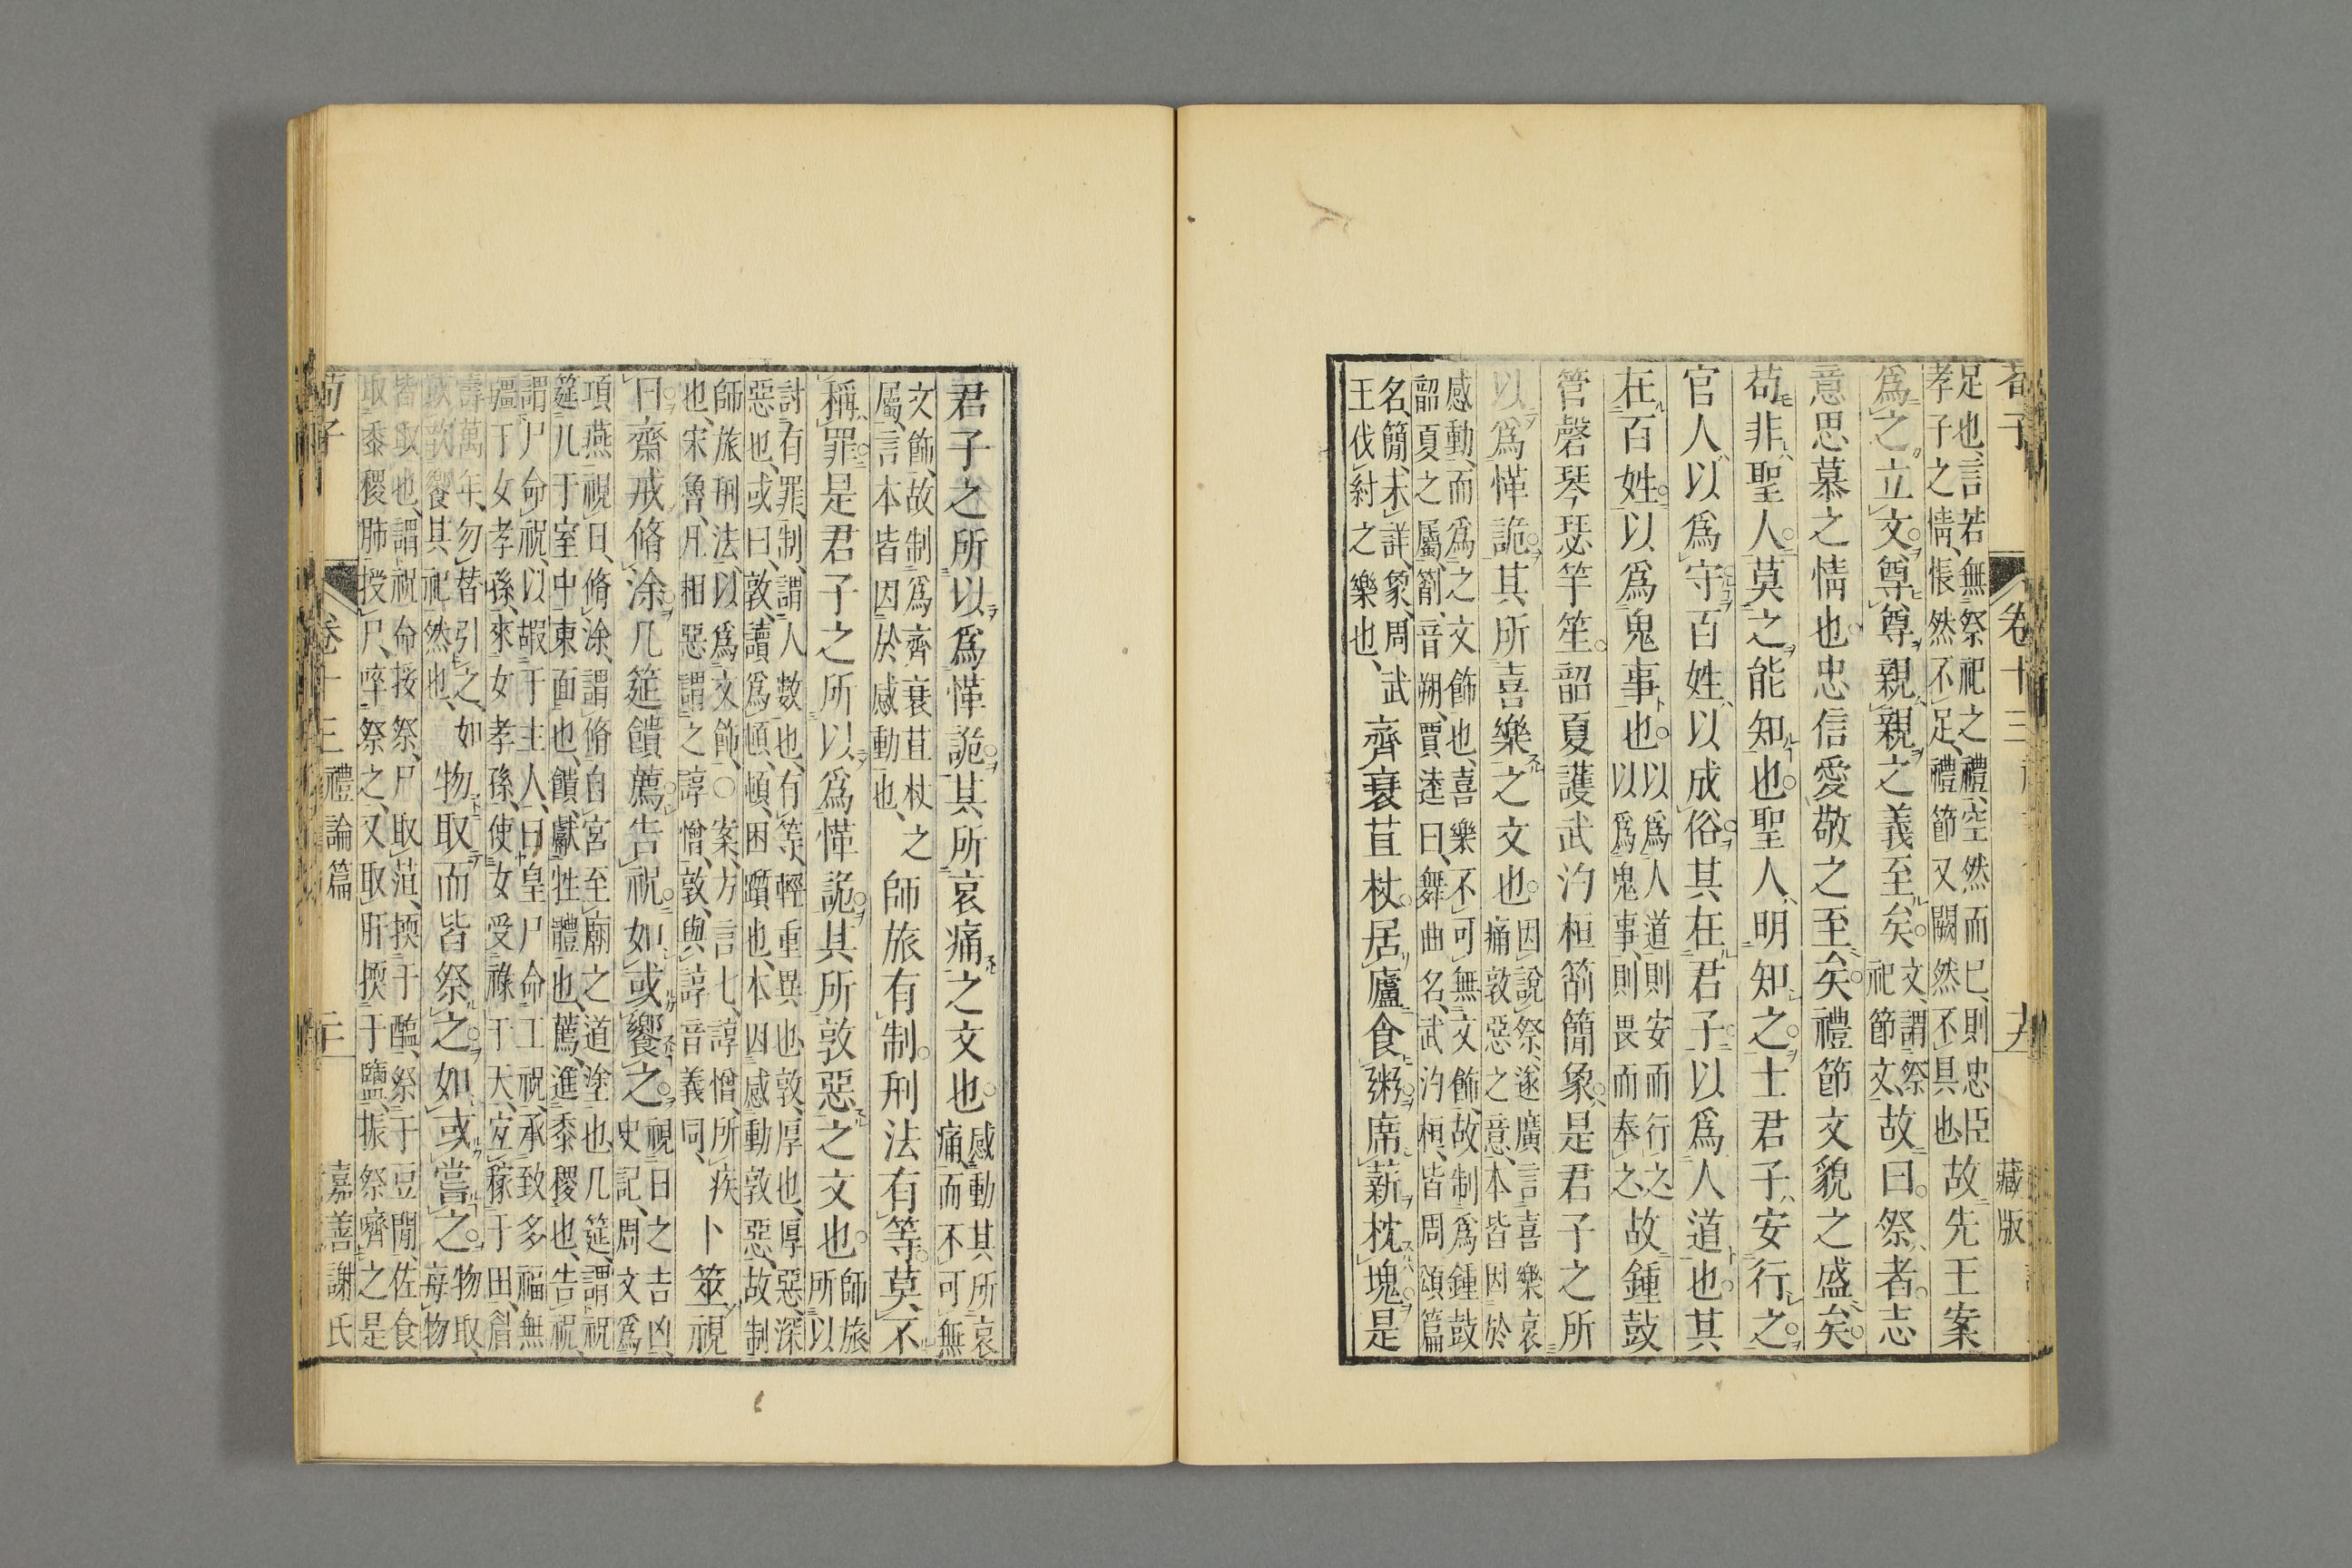 荀子 卷十三 十九 藏版
足也、言若無祭祀之禮、空然而已、則忠臣
孝子之情、悵然不足、禮節又闕然不具也
故先王案
爲之立文尊尊親親之義至矣。
文、謂祭
祀節文、
故曰。祭者。志
意思慕之情也。忠信愛敬之至矣。禮節文貌之盛矣。
苟非聖人。莫之能知也。聖人明知之。士君子安行之。
官人以爲守。百姓以成俗。其在君子。以爲人道也。其
在百姓。以爲鬼事也。
以爲人道則安而行之、
以爲鬼事、則畏而奉之、
故鍾鼓
管磬琴瑟竽笙。韶夏護武汋桓箾簡象。是君子之所
以爲愅詭。其所喜樂之文也。
因說祭、遂廣言喜樂哀
痛敦惡之意、本皆因於
感動、而爲之文飾也、喜樂不可無文飾、故制爲鍾鼓
韶夏之屬、箾、音朔、賈逵曰、舞曲名、武汋桓、皆周頌篇
名、簡、未詳、象、周武
王伐紂之樂也、
齊衰苴杖。居廬食粥。席薪枕塊。是
君子之所以爲愅詭。其所哀痛之文也。
感動其所哀
痛、而不可無
文飾、故制爲齊衰苴杖、之
屬、言本皆因於感動也、
師旅有制。刑法有等。莫不
稱罪。是君子之所以爲愅詭。其所敦惡之文也。
師旅
所以
討有罪、制、謂人數也、有等、輕重異也、敦、厚也、厚惡、深
惡也、或曰、敦、讀爲頓、頓、困躓也、本因感動敦惡、故制
師旅刑法、以爲文飾、○案、方言七、諄憎、所疾
也、宋魯、凡相惡謂之諄憎、敦、與諄音義同、
卜筮視
日。齋戒脩涂。几筵饋薦。告祝如或饗之。
視日之吉凶、
史記、周文爲
項燕視日、脩涂、謂脩自宮至廟之道塗也、几筵、謂祝
筵几于室中東面也、饋、獻牲體也、薦、進黍稷也、告祝、
謂尸命祝、以嘏于主人、曰皇尸命工祝、承致多福無
疆于女孝孫、來女孝孫、使女受祿于天、宜稼于田、眉
壽萬年、勿替引之、如
或歆饗其祀然也、
物取而皆祭之。如或嘗之。
物取、
每物
皆取也、謂祝命挼祭、尸取菹、擩于醢、祭于豆閒、佐食
取黍稷肺授尸、啐祭之、又取肝擩于鹽、振祭嚌之是
荀子 卷十三禮論篇 二十 嘉善謝氏